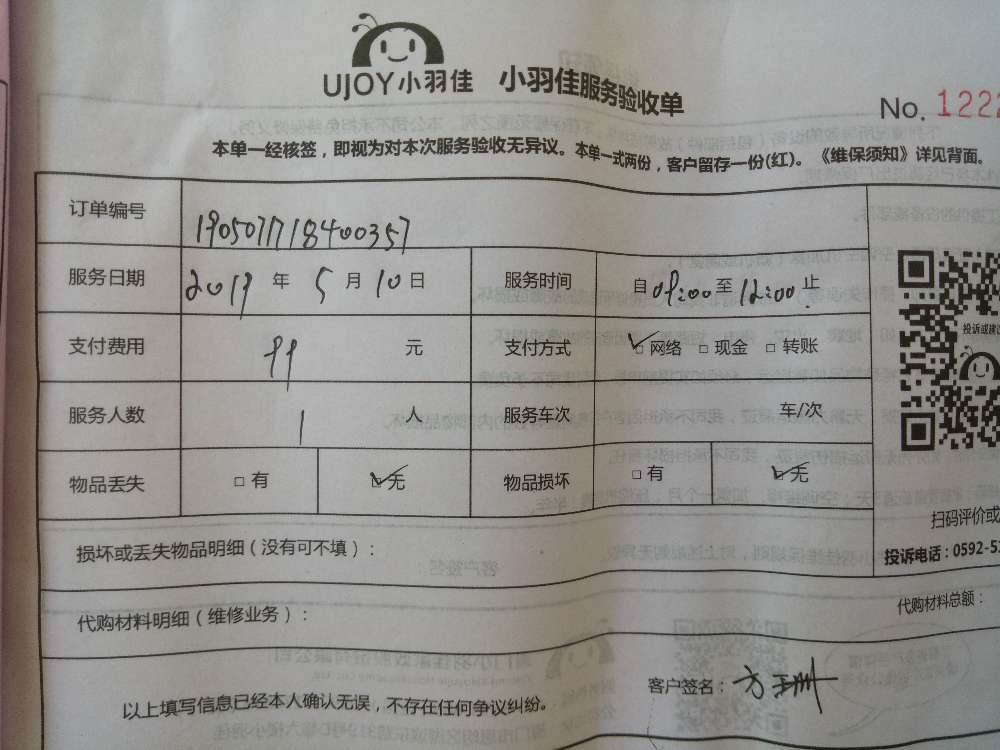 UJOY小羽佳 小羽佳服务验收单
No. 1222
本单一经核签，即视为对本次服务验收无异议。本单一式两份，客户留存一份(红)。《维保须知》详见背面。
订单编号 1905071718400357
服务日期 2019 年 5 月 10 日 服务时间 自 09:00 至 12:00 止
支付费用 99 元 支付方式 ☑网络 □现金 □转账
投诉或建
服务人数 1 人 服务车次 车/次
物品丢失 □有 ☑无 物品损坏 □有 ☑无
扫码评价或
损坏或丢失物品明细（没有可不填）：
投诉电话：0592-52
代购材料明细（维修业务）： 代购材料总额：
以上填写信息已经本人确认无误，不存在任何争议纠纷。 客户签名：